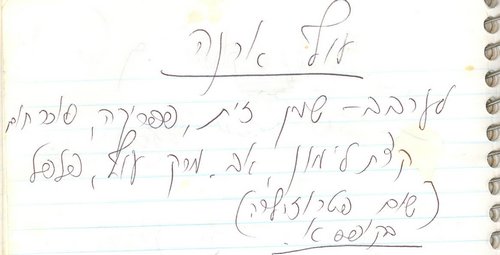 עוף ארנה
לערבב - שמן זית, פפריקה, סוכר חום
קצת לימון, אב. מרק עוף, פלפל
(שום פטרוזיליה)
בקופסא